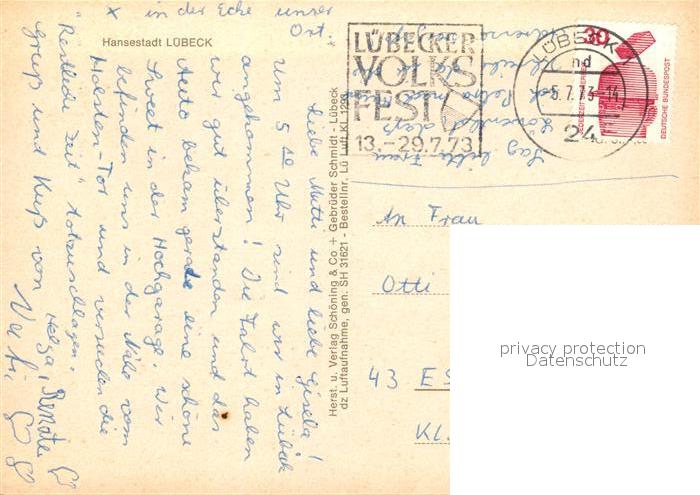 x in der Ecke unser
Ort.
Hansestadt LÜBECK
Liebe Mutti und liebe Gisela!
Um 5 10 Uhr sind wir in Lübeck
angekommen! Die Fahrt haben
wir gut überstanden und das
Auto bekam gerade eine schöne
Sweet in der Hochgarage. Wir
befinden uns in der Nähe vom
Holsten-Tor und versuchen die
"Restliche Zeit totzuschlagen.
Gruß und Kuß von Helga,
Renate
Herst. u. Verlag Schöning & Co + Gebrüder Schmidt - Lübeck
dz Luftaufnahme, gen. SH 31621 - Bestellnr. Lü Luft KL 1293
LÜBECKER
VOLKS
FEST
13.-29.7.73
LÜBECK
nd
5.7.73-14
24
30
JEDERZEIT SICHERHEIT
DEUTSCHE BUNDESPOST
Sag bitte Frau
An Frau
Otti
43 ES
Kl.
privacy protection
Datenschutz